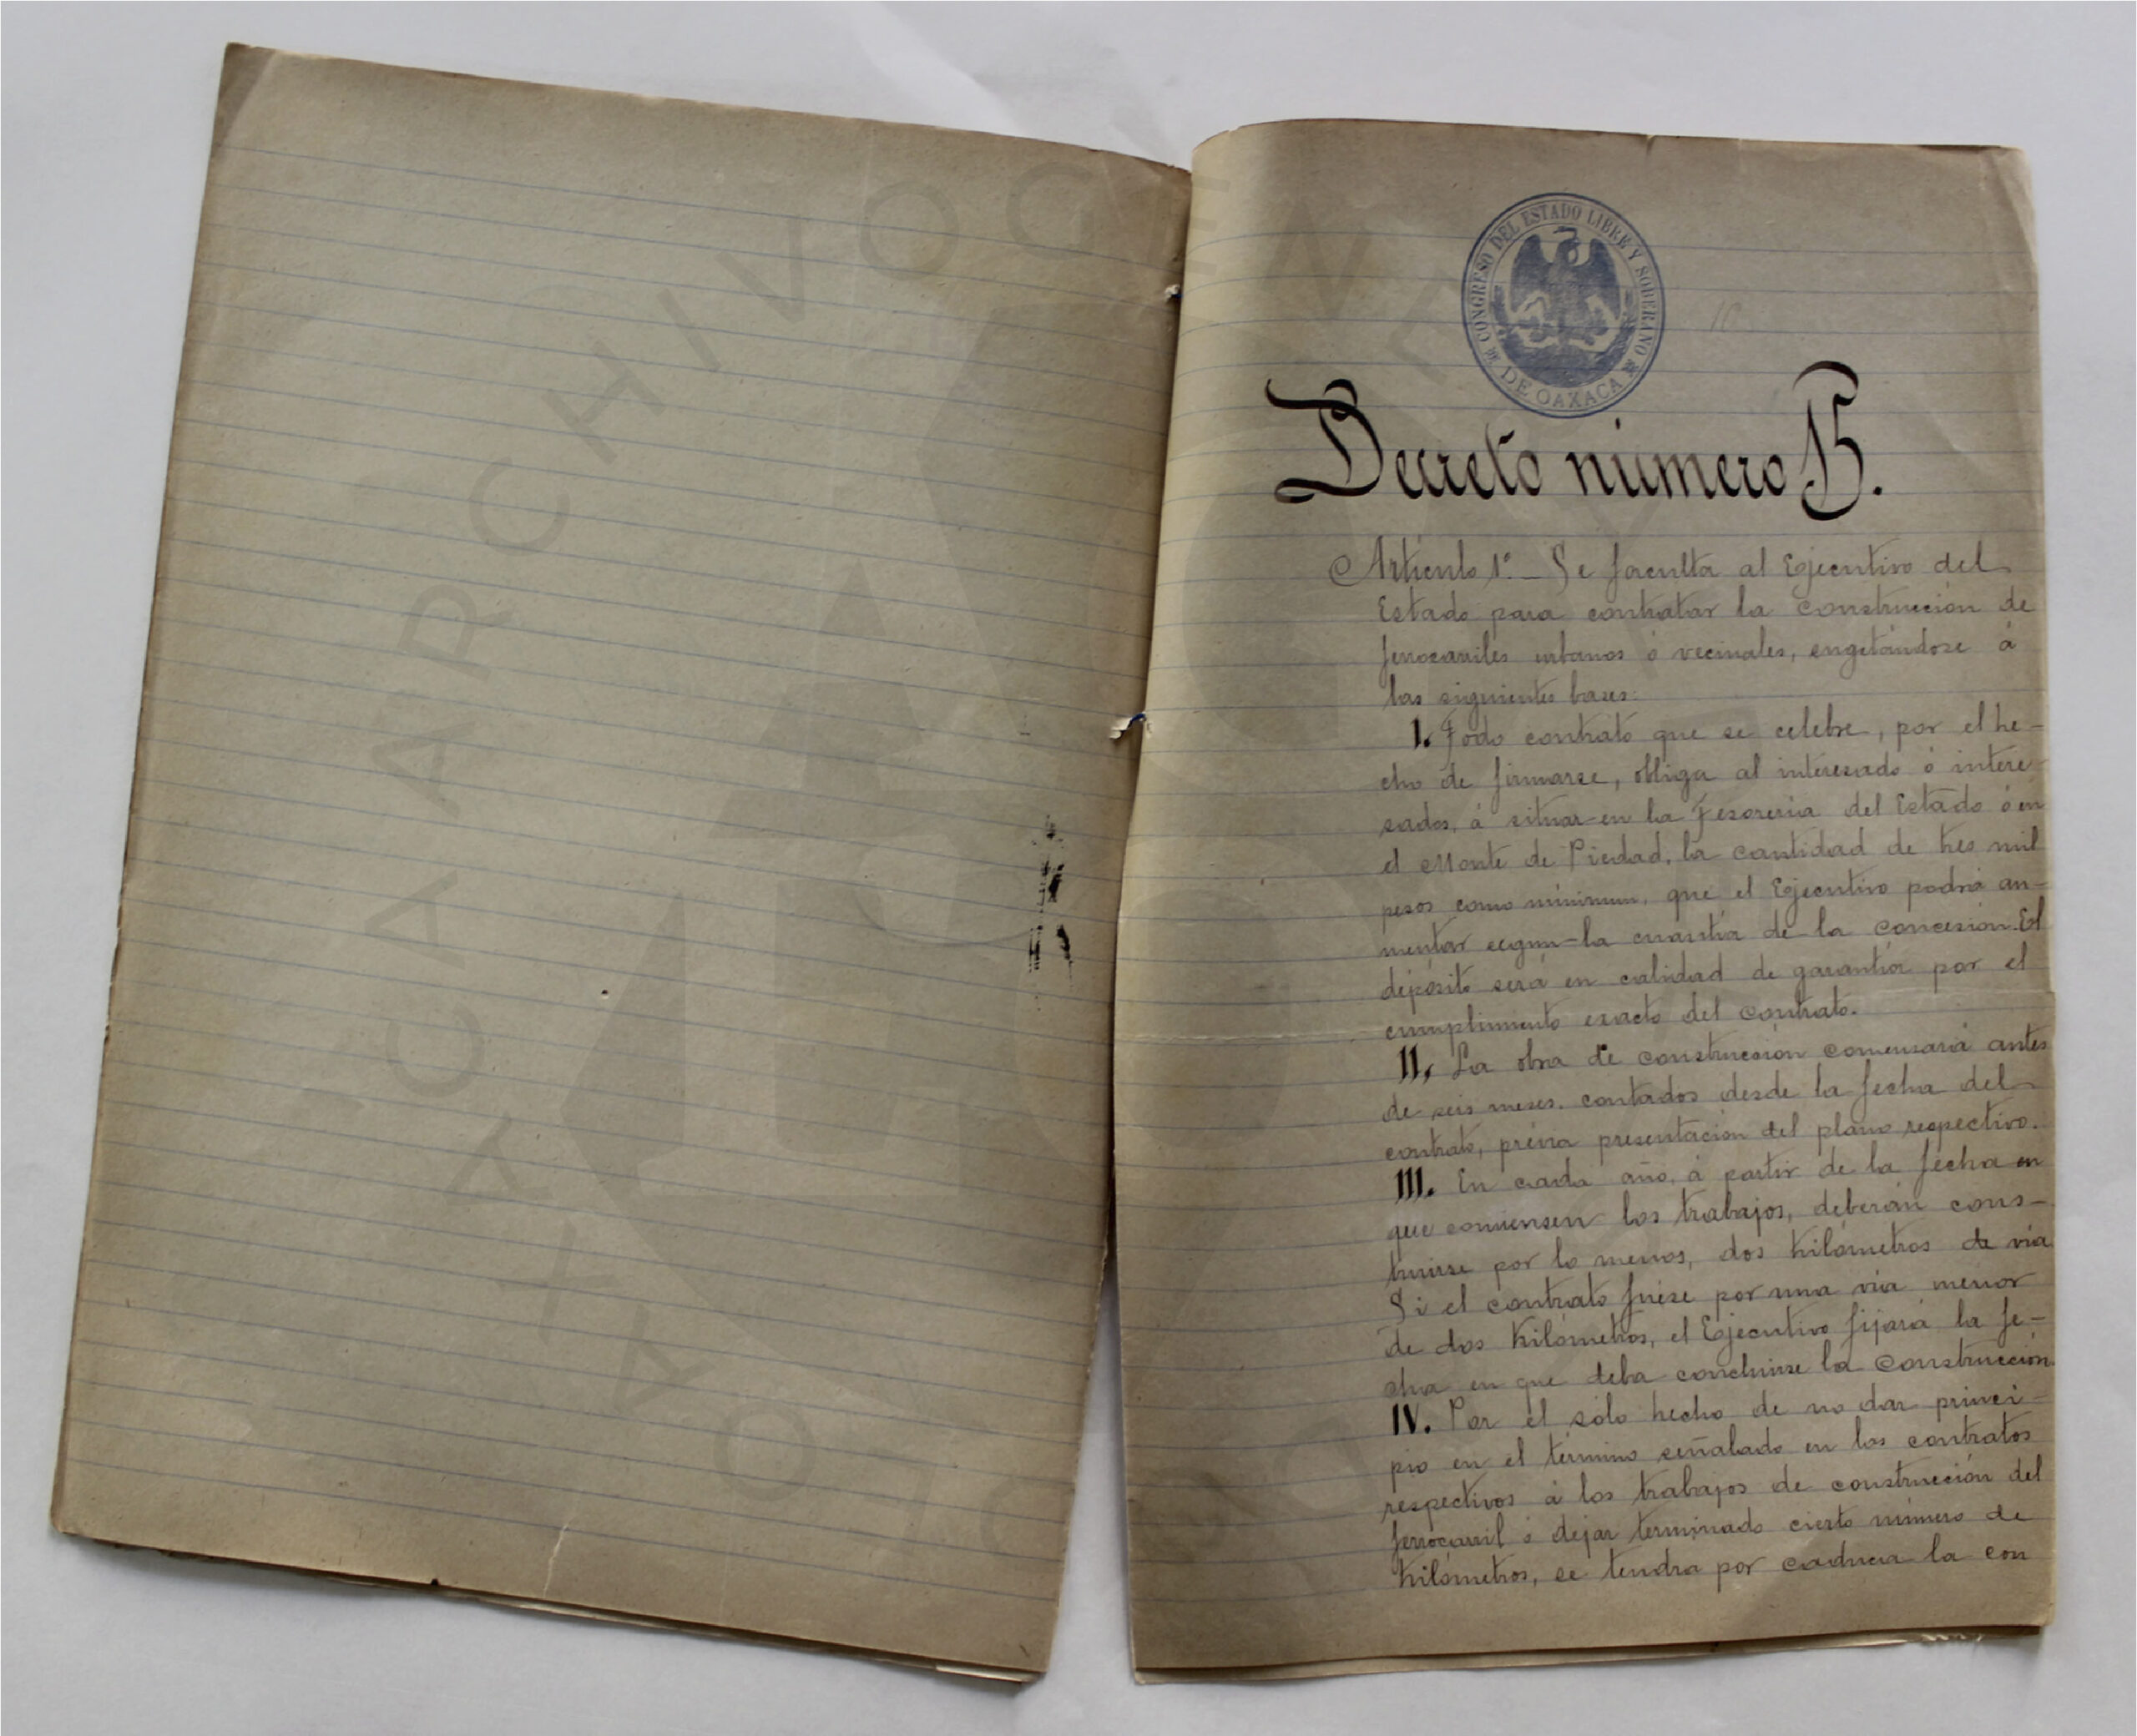 CONGRESO DEL ESTADO LIBRE Y SOBERANO
DE OAXACA
Decreto número 15.
Artículo 1º. Se faculta al Ejecutivo del
Estado para contratar la construcción de
ferrocarriles urbanos ó vecinales, sugetándose á
las siguientes bases:
I. Todo contrato que se celebre, por el he-
cho de firmarse, obliga al interesado ó intere-
sados, á situar en la Tesorería del Estado ó en
el Monte de Piedad, la cantidad de tres mil
pesos como mínimum, que el Ejecutivo podrá au-
mentar segun la cuantía de la concesión. El
depósito será en calidad de garantía por el
cumplimiento exacto del contrato.
II. La obra de construcción comensará antes
de seis meses, contados desde la fecha del
contrato, prévia presentación del plano respectivo.
III. En cada año, á partir de la fecha en
que comiensen los trabajos, deberán cons-
truirse por lo menos, dos kilómetros de vía.
Si el contrato fuese por una vía menor
de dos kilómetros, el Ejecutivo fijará la fe-
cha en que deba concluirse la construcción.
IV. Por el sólo hecho de no dar princi-
pio en el término señalado en los contratos
respectivos á los trabajos de construcción del
ferrocarril ó dejar terminado cierto número de
kilómetros, se tendra por caduca la con
ARCHIVO GENERAL
OAXACA